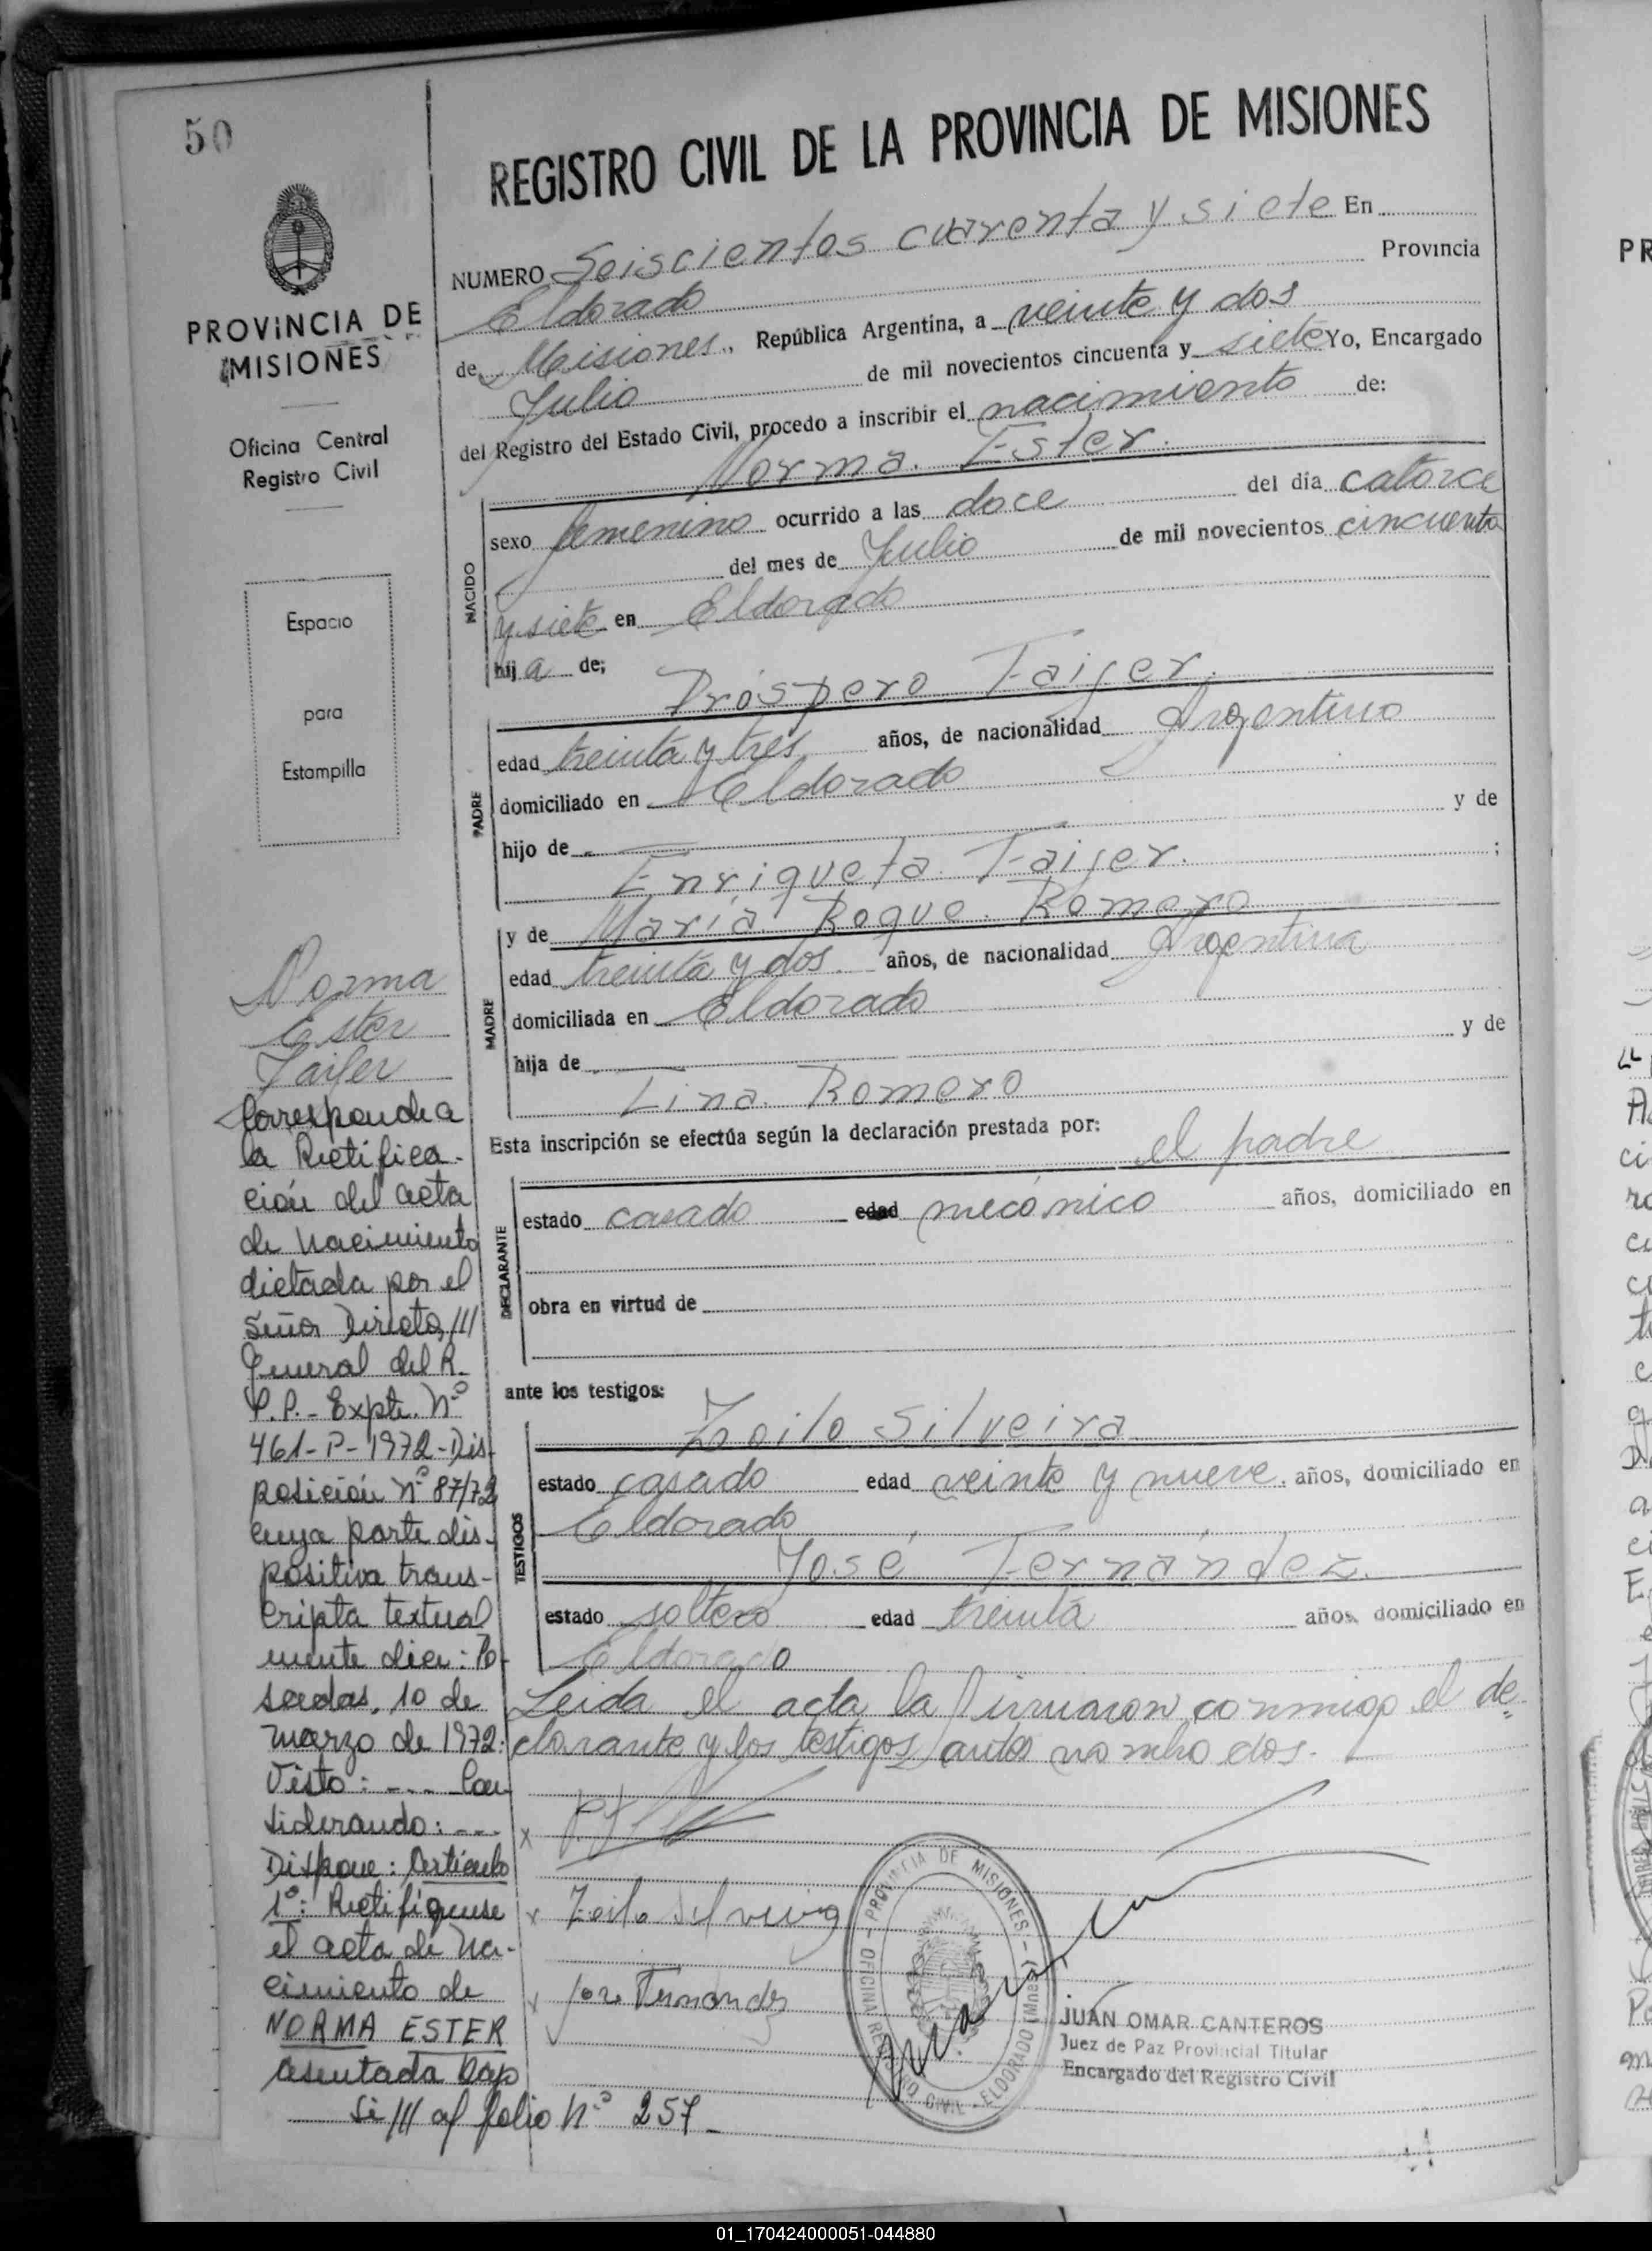 50
REGISTRO CIVIL DE LA PROVINCIA DE MISIONES
PROVINCIA DE
MISIONES
Oficina Central
Registro Civil
Espacio
para
Estampilla
NUMERO Seiscientos cuarenta y siete En
Eldorado Provincia
de Misiones, República Argentina, a veinte y dos
Julio de mil novecientos cincuenta y siete Yo, Encargado
del Registro del Estado Civil, procedo a inscribir el nacimiento de:
Norma Ester.
NACIDO
sexo femenino ocurrido a las doce del día catorce
del mes de Julio de mil novecientos cincuenta
y siete en Eldorado
hija de;
Próspero Faifer.
PADRE
edad treinta y tres años, de nacionalidad Argentino
domiciliado en Eldorado
hijo de y de
Enriqueta Faifer. ;
MADRE
y de María Roque Romero
edad treinta y dos años, de nacionalidad Argentina
domiciliada en Eldorado
hija de y de
Lina Romero
Esta inscripción se efectúa según la declaración prestada por: el padre
DECLARANTE
estado casado edad mecánico años, domiciliado en
obra en virtud de
ante los testigos:
TESTIGOS
Zoilo Silveira
estado casado edad veinte y nueve años, domiciliado en
Eldorado
José Fernández.
estado soltero edad treinta años, domiciliado en
Eldorado
Leida el acta la firmaron conmigo el de-
clarante y los testigos antes nombrados.
x
x Zoilo Silveira
x Jose Fernandez
PROVINCIA DE MISIONES
OFICINA REGISTRO CIVIL - ELDORADO (Mnes.)
JUAN OMAR CANTEROS
Juez de Paz Provincial Titular
Encargado del Registro Civil
Norma
Ester
Faifer
Corresponde a
la Rectifica-
ción del acta
de Nacimiento
dictada por el
Señor Director ///
General del R.
P.P.- Expte. Nº
461-P-1972-Dis-
posición Nº 87/72
cuya parte dis-
positiva trans-
cripta textual
mente dice: Po-
sadas, 10 de
marzo de 1972:
Visto: --- Con
siderando: ---
Dispone: Artículo
1º: Rectifíquese
el acta de Na-
cimiento de
NORMA ESTER
asentada bajo
Si /// al folio Nº 257
01_170424000051-044880